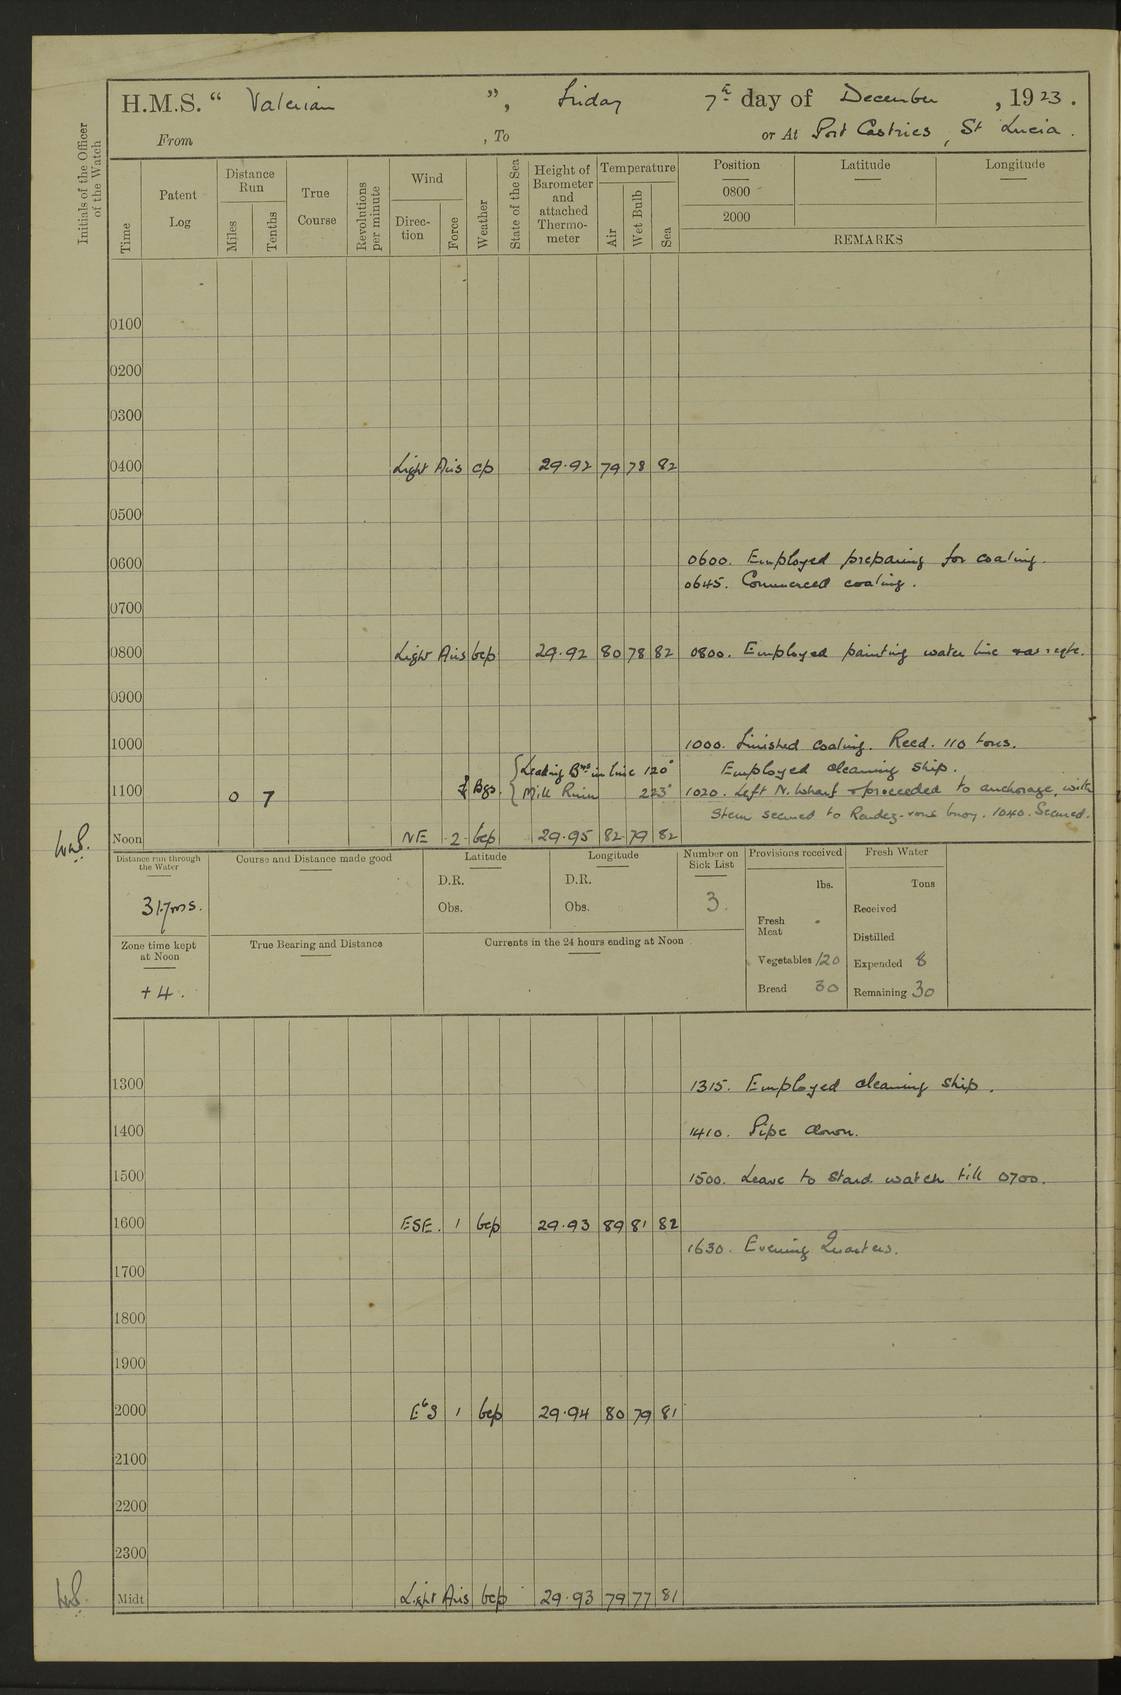 H.M.S. “ Valerian ”, Friday 7th day of December , 1923.
From , To or At Port Castries, St Lucia.
Initials of the Officer of the Watch
Time
Patent Log
Distance Run
Miles
Tenths
True Course
Revolutions per minute
Wind
Direction
Force
Weather
State of the Sea
Height of Barometer and attached Thermometer
Temperature
Air
Wet Bulb
Sea
Position
0800
2000
Latitude
Longitude
REMARKS
0100
0200
0300
0400 Light Airs cp 29.92 79 78 82
0500
0600 0600. Employed preparing for coaling.
0645. Commenced coaling.
0700
0800 Light Airs bcp 29.92 80 78 82 0800. Employed painting water line
0900
1000 1000. Finished coaling. Recd. 110 tons.
Leading Bns in line 120° Employed cleaning ship.
1100 0 7 Bgs. Mill Ruin 223° 1020. Left N. Wharf & proceeded to anchorage, with
Stern secured to Rendez-vous buoy. 1040. Secured.
Noon NE 2 bcp 29.95 82 79 82
Distance run through the Water
317ms.
Course and Distance made good
Latitude
D.R.
Obs.
Longitude
D.R.
Obs.
Number on Sick List
3.
Provisions received
lbs.
Fresh Meat -
Vegetables 120
Bread 30
Fresh Water
Tons
Received
Distilled
Expended 8
Remaining 30
Zone time kept at Noon
+4.
True Bearing and Distance
Currents in the 24 hours ending at Noon
1300 1315. Employed cleaning ship.
1400 1410. Pipe down.
1500 1500. Leave to Stard. watch till 0700.
1600 ESE. 1 bcp 29.93 89 81 82
1630. Evening Quarters.
1700
1800
1900
2000 EbS 1 bcp 29.94 80 79 81
2100
2200
2300
Midt Light Airs bcp 29.93 79 77 81